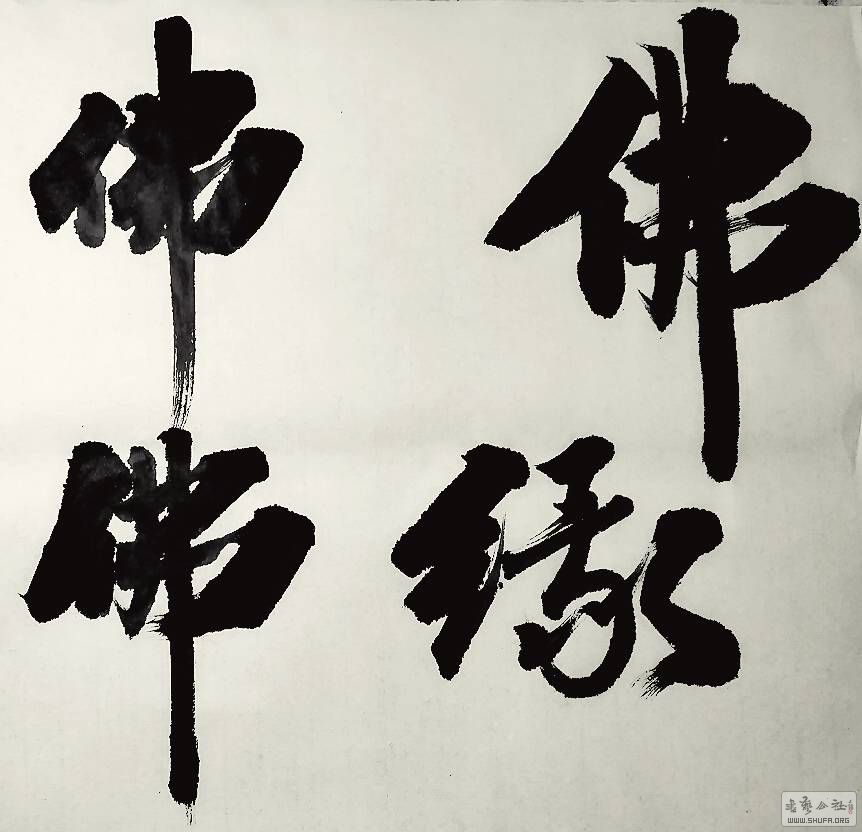 佛缘
佛佛
书艺公社
WWW.SHUFA.ORG